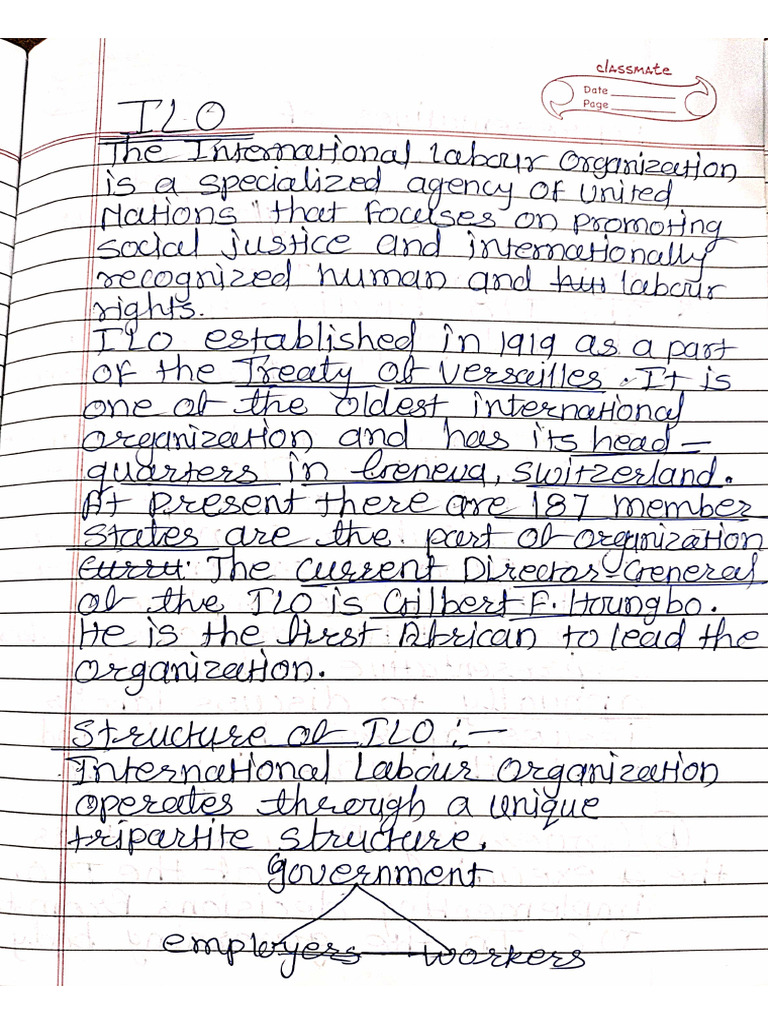 classmate
Date
Page
ILO
The International Labour Organization
is a specialized agency of United
Nations that focuses on promoting
social justice and internationally
recognized human and labour
rights.
ILO established in 1919 as a part
of the Treaty of Versailles. It is
one of the oldest international
organization and has its head-
quarters in Geneva, Switzerland.
At present there are 187 member
states are the part of organization
The current Director-General
of the ILO is Gilbert F. Houngbo.
He is the first African to lead the
organization.
Structure of ILO :-
International Labour Organization
operates through a unique
tripartite structure.
government
employers workers